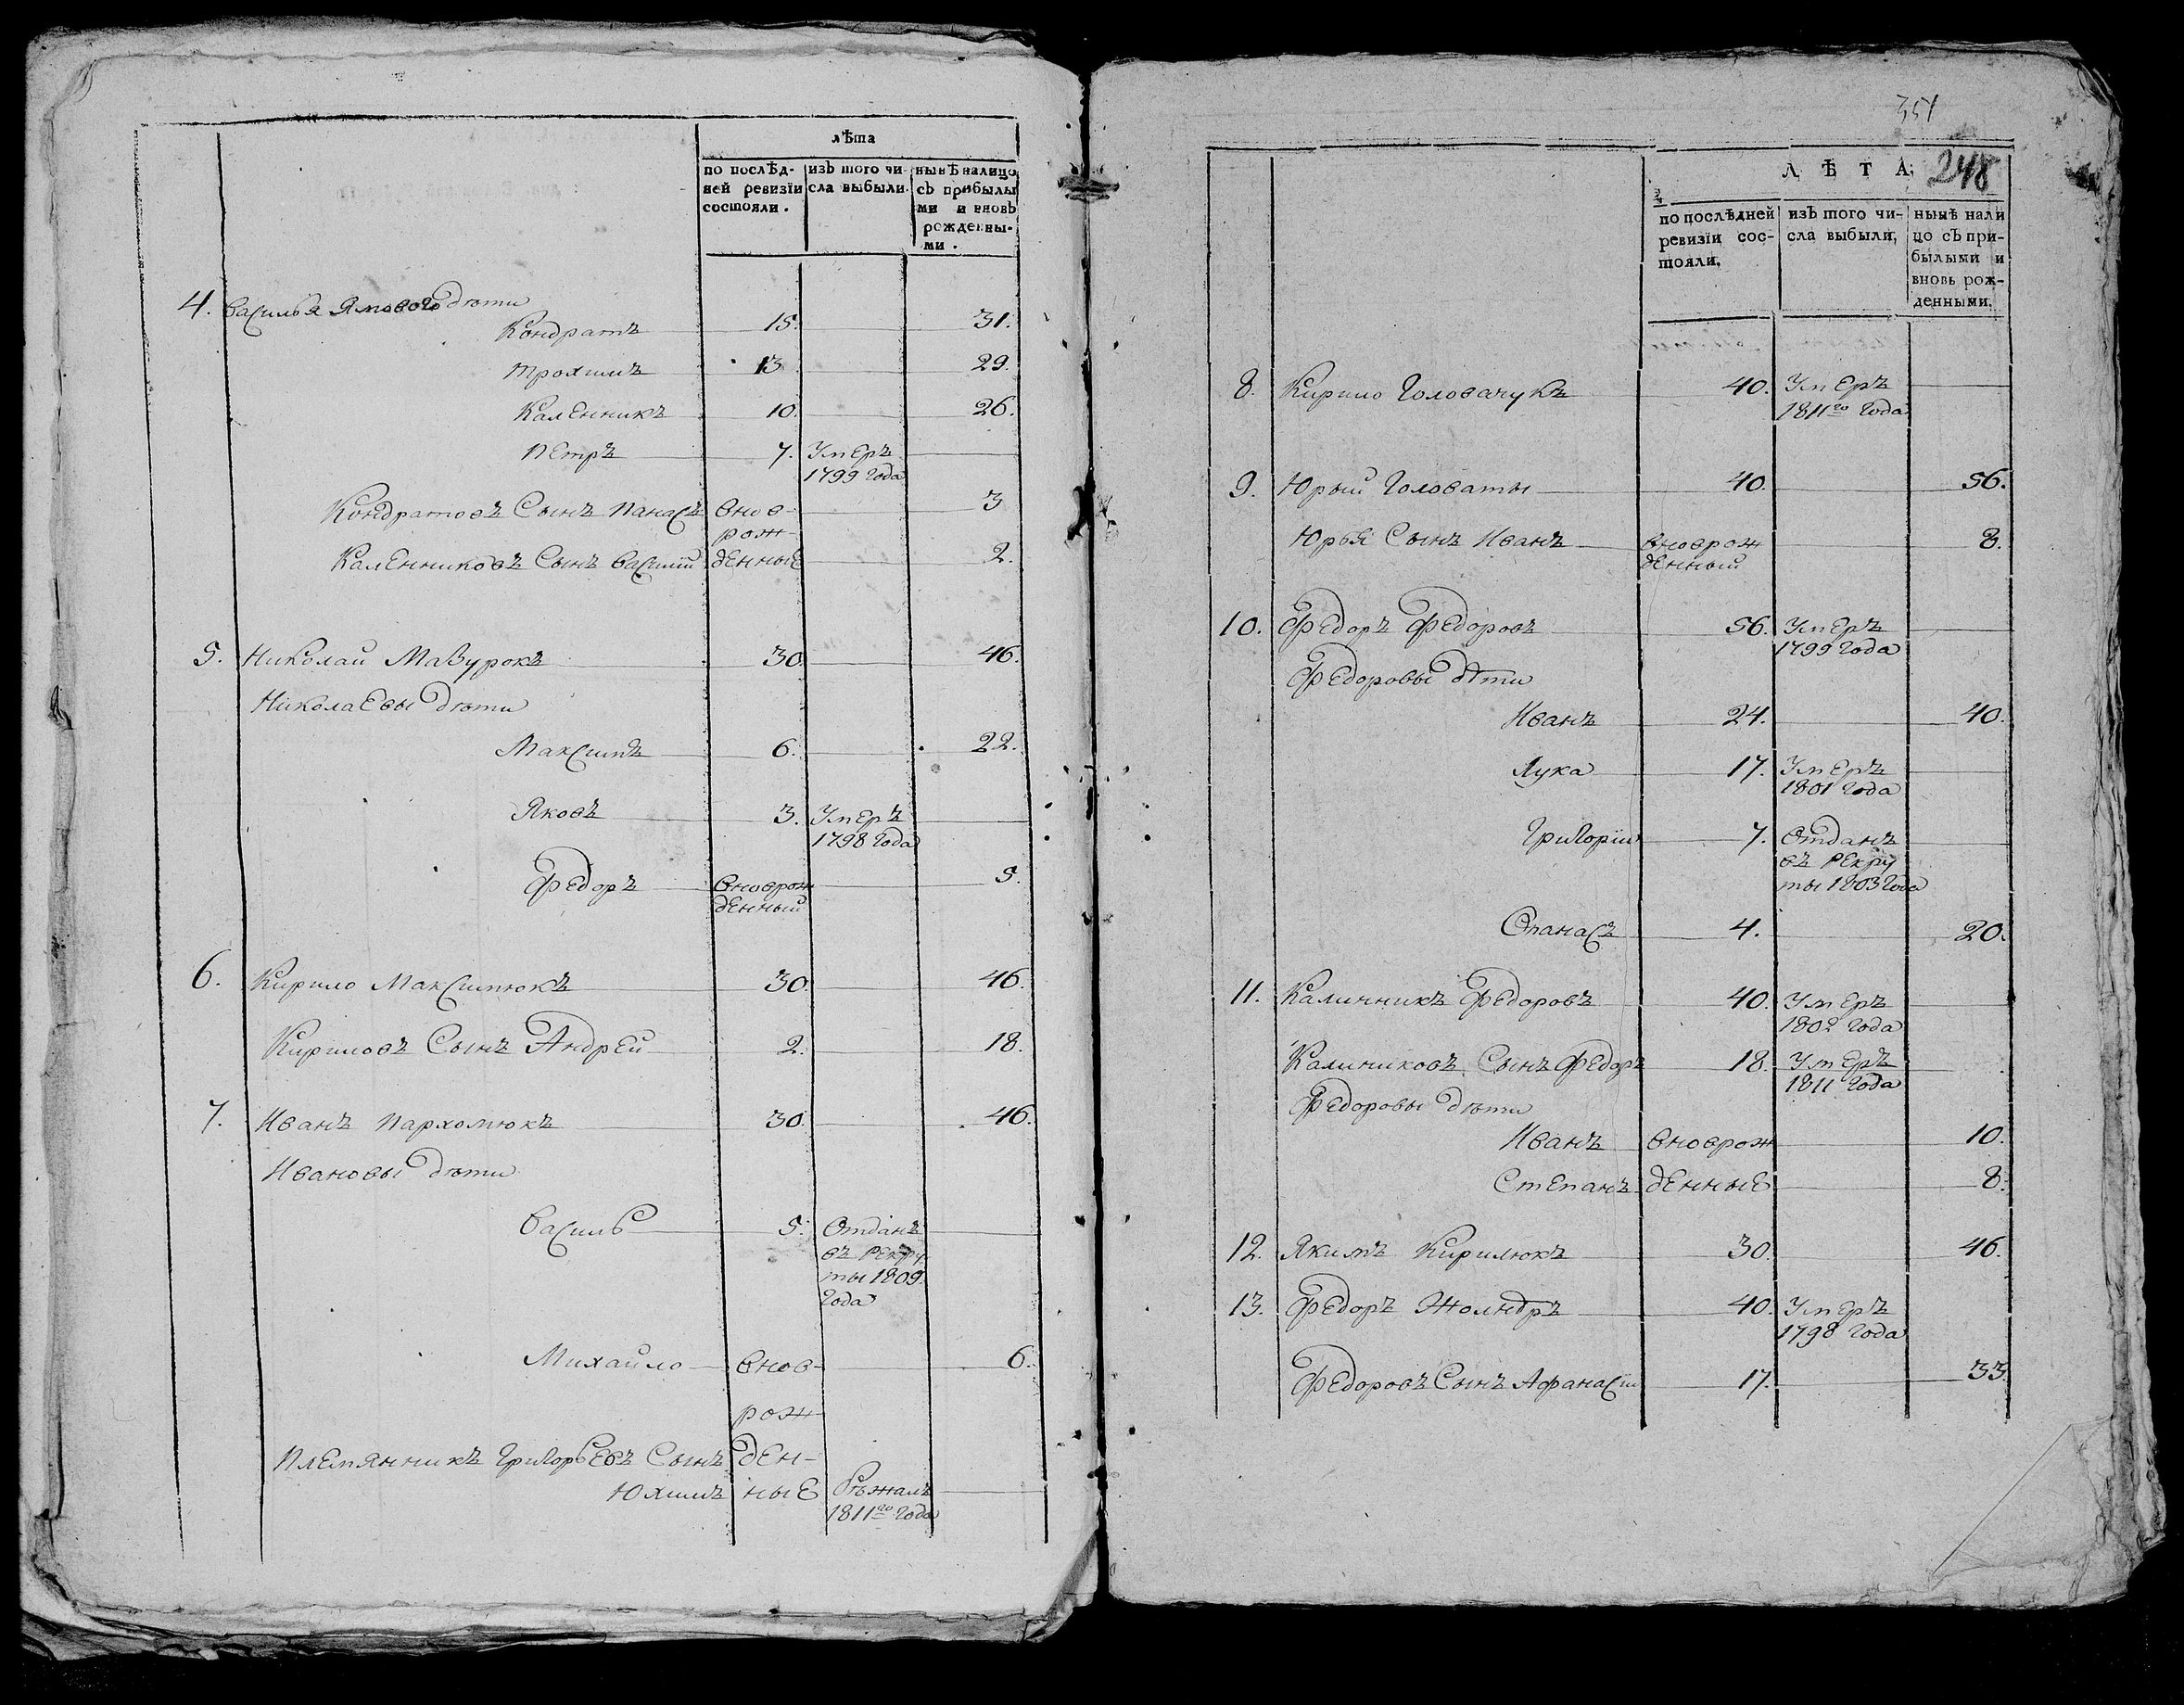 лѣта
по послѣд- изъ того чи- нынѣ налицо
ней ревизїи сла выбыли. съ прибылы
состояли. ми и вновь
рожденны-
ми.
4. Василья дѣти
Кондратъ 15. 31.
Трохимъ 13 29.
Каленникъ 10. 26.
Петръ 7. Умеръ
1799 года
Кондратовъ Сынъ Панасъ внов- 3
рож-
Каленниковъ Сынъ Василий денные 2.
5. Николай Мазурокъ 30. 46.
Николаевы дѣти
Максимъ 6. 22.
Яковъ 3. Умеръ
1798 года
Федоръ вноврож 5.
денный
6. Кирило Максимюкъ 30. 46.
Кириловъ Сынъ Андрей 2. 18.
7. Иванъ Пархомюкъ 30. 46.
Ивановы дѣти
Василь 5. Отданъ
въ рекру
ты 1809.
года
Михайло внов- 6.
рож-
Племянникъ Григорьевъ Сынъ ден-
Юхимъ ные Бѣжалъ
1811го года
351
ЛѢТА. 248
по послѣдней изъ того чи- нынѣ нали
ревизїи сос- сла выбыли, цо съ при-
тояли. былыми и
вновь рож-
денными.
8. Кирило Головачукъ 40. Умеръ
1811го года
9. Юрый Головаты 40. 56.
Юрья Сынъ Иванъ вноврож 8.
денный
10. Федоръ Федоровъ 56. Умеръ
1799 года
Федоровы дѣти
Иванъ 24. 40.
Лука 17. Умеръ
1801 года
Григорїй 7. Отданъ
въ рекру
ты 1803 года
Опанасъ 4. 20.
11. Калинникъ Федоровъ 40. Умеръ
1802 года
Калиниковъ Сынъ Федоръ 18. Умеръ
1811 года
Федоровы дѣти
Иванъ вноврож 10.
Степанъ денные 8.
12. Якимъ Кирилюкъ 30. 46.
13. Федоръ Жолндръ 40. Умеръ
1798 года
Федоровъ Сынъ Афанасїй 17. 33.